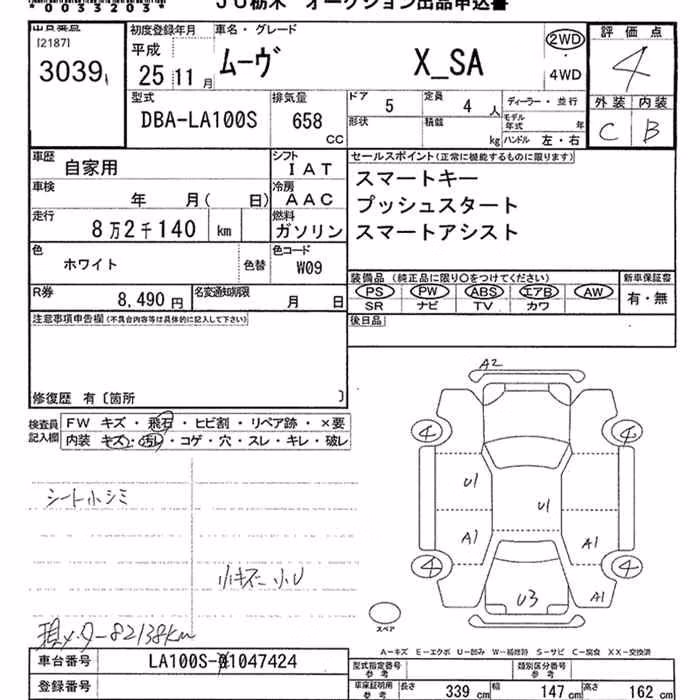 *0053203*
JU栃木 オークション出品申込書
出品番号 初度登録年月 車名・グレード 評価点
[2187] 平成
3039 25 11月 ムーヴ X_SA 2WD 4
4WD
型式 排気量 ドア 5 定員 4 人 ディーラー・並行 外装 内装
DBA-LA100S 658 CC 形状 積載 kg モデル年式 年 C B
ハンドル 左・右
車歴 自家用 シフト IAT セールスポイント(正常に機能するものに限ります)
車検 年 月( 日) 冷房 AAC スマートキー
走行 8万2千140 km 燃料 ガソリン プッシュスタート
スマートアシスト
色 ホワイト 色替 色コード W09
装備品(純正品に限り〇をつけてください) 新車保証書
R券 8,490円 名変通知期限 月 日 PS PW ABS エアB AW 有・無
SR ナビ TV カワ
注意事項申告欄(不具合内容等は具体的に記入して下さい) 後日品
修復歴 有〔箇所 〕
検査員記入欄 FW キズ・飛石・ヒビ割・リペア跡・×要
内装 キズ・汚レ・コゲ・穴・スレ・キレ・破レ
A2
4 4
U1 U1
A1 A1
4 4
U3 A1
シート小シミ
小キズ小U
現メーター82138km
スペア
A-キズ E-エクボ U-凹み W-補修跡 S-サビ C-腐食 XX-交換済
車台番号 LA100S-1047424
型式指定番号 参考 類別区分番号 参考
登録番号
車庫証明用 参考 長さ 339 cm 幅 147 cm 高さ 162 cm